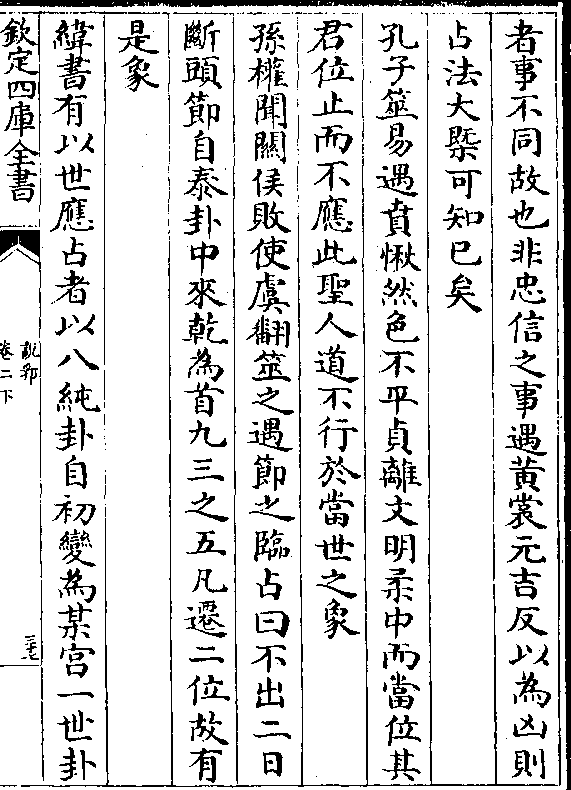 者事不同故也非忠信之事遇黄裳元吉反以為凶則
占法大槩可知已矣
孔子筮易遇賁愀然色不平貞離文明柔中而當位其
君位止而不應此聖人道不行於當世之象
孫權聞關侯敗使虞翻筮之遇節之臨占曰不出二日
斷頭節自泰卦中來乾為首九三之五凡遷二位故有
是象
緯書有以世應占者以八純卦自初變為某宫一世卦
欽定四庫全書
説郛
卷二下
三七